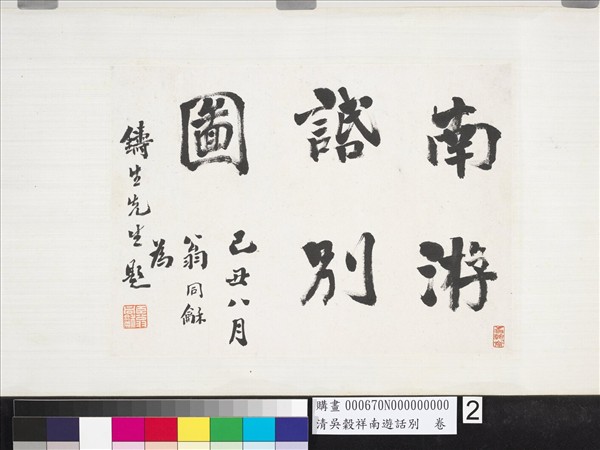 南游
諙別
圖
己丑八月
翁同龢
為
鑄生先生題
購畫 000670N000000000
清吳穀祥南遊話別 卷
2